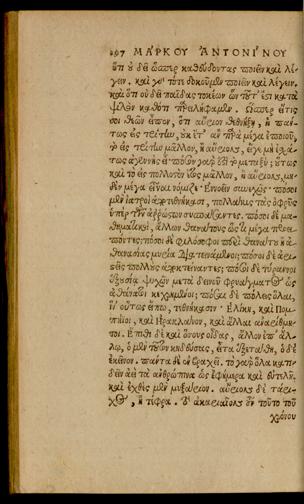 107 ΜΑΡΚΟΥ ΑΝΤΟΝΙΝΟΥ
ὅτι οὐ δεῖ ὥσπερ καθεύδοντας ποιεῖν καὶ λέ-
γειν. καὶ γὰρ τότε δοκοῦμεν ποιεῖν καὶ λέγειν.
καὶ ὅτι οὐ δεῖ παῖδας τοκέων ὧν τοῦτ' ἔστι κατὰ
ψιλὸν καθότι παρειλήφαμεν. Ὥσπερ εἴ τίς
σοι θεῶν εἶπεν, ὅτι αὔριον τεθνήξῃ, ἢ πάν-
τως εἰς τρίτην, οὐκέτ' ἂν παρὰ μέγα ἐποιοῦ,
τὸ εἰς τρίτην μᾶλλον, ἢ αὔριον, εἴγε μὴ ἐσχά-
τως ἀγεννὴς εἶ. πόσον γάρ ἐστι τὸ μεταξύ; οὕτως
καὶ τὸ εἰς πολλοστὸν ἔτος μᾶλλον, ἢ αὔριον, μη-
δὲν μέγα εἶναι νόμιζε. Ἐννοεῖν συνεχῶς πόσοι
μὲν ἰατροὶ ἀποτεθνήκασι, πολλάκις τὰς ὀφρῦς
ὑπὲρ τῶν ἀρρώστων συσπάσαντες. πόσοι δὲ μα-
θηματικοί, ἄλλων θανάτους ὥς τι μέγα προει-
πόντες; πόσοι δὲ φιλόσοφοι περὶ θανάτου ἢ ἀ-
θανασίας μυρία διατεινάμενοι; πόσοι δὲ ἀρι-
στεῖς πολλοὺς ἀποκτείναντες; πόσοι δὲ τύραννοι
ἐξουσίᾳ ψυχῶν μετὰ δεινοῦ φρυάγματος ὡς
ἀθάνατοι κεχρημένοι; πόσαι δὲ πόλεις ὅλαι,
ἵν' οὕτως εἴπω, τεθνήκασιν· Ἑλίκη, καὶ Πομ-
πήϊοι, καὶ Ἡρκλάνον, καὶ ἄλλαι ἀναρίθμη-
τοι. Ἔπιθι δὲ καὶ ὅσους οἶδας, ἄλλον ἐπ' ἄλ-
λῳ, ὁ μὲν τοῦτον κηδεύσας, εἶτα ἐξετάθη, ὁ δὲ
ἐκεῖνον. πάντα δὲ ἐν βραχεῖ. τὸ γὰρ ὅλα κατι-
δεῖν ἀεὶ τὰ ἀνθρώπινα ὡς ἐφήμερα καὶ εὐτελῆ,
καὶ ἐχθὲς μὲν μυξάριον. αὔριον δὲ τάρι-
χος, ἢ τέφρα. τὸ ἀκαριαῖον οὖν τοῦτο τοῦ
χρόνου